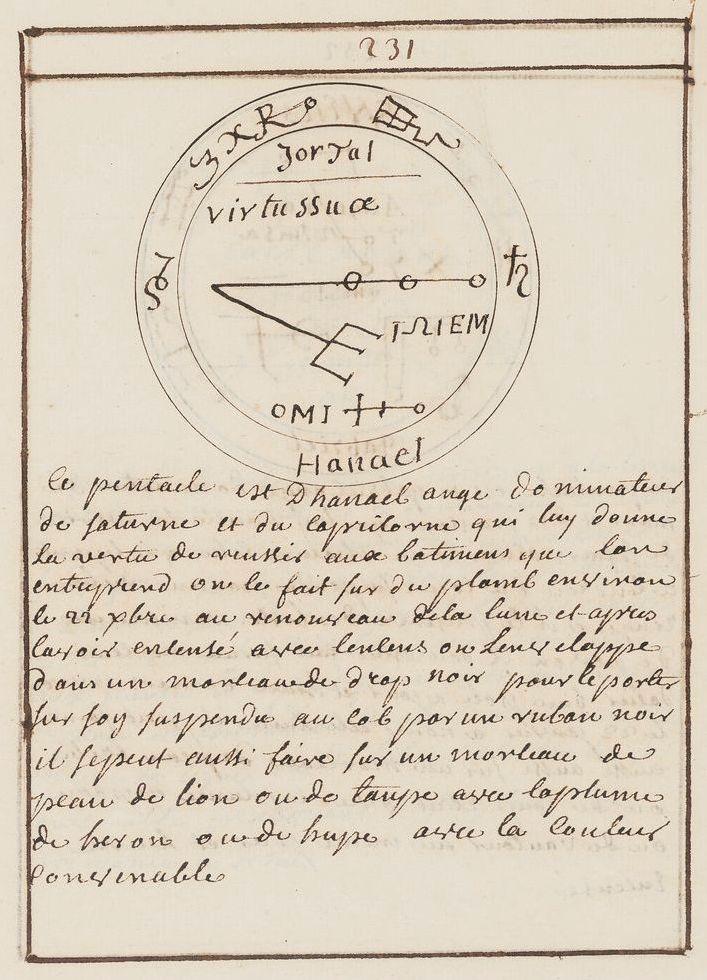 231
Jortal
virtussuæ
♄
IΩIEM
OMI
Hanael
ce pentacle est Dhanael ange dominateur
de saturne et du capricorne qui luy donne
la vertu de reussir aux batimens que lon
entreprend on le fait sur du plomb environ
le 22 xbre au renouveau dela lune et apres
lavoir encensé avec lencens on Lenveloppe
dans un morceau de drap noir pour le porter
sur soy suspendu au col par un ruban noir
il sepeut aussi faire sur un morceau de
peau de lion ou de taupe avec laplume
de heron ou de hupe avec la couleur
convenable